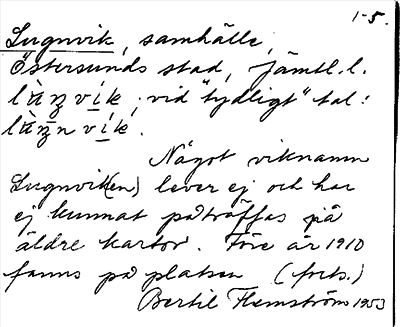 1-5.
Lugnvik, samhälle,
Östersunds stad, Jämtl. l.
vid "tydligt" tal:
Något viknamn
Lugnvik(en) lever ej och har
ej kunnat påträffas på
äldre kartor. Före år 1910
fanns på platsen (forts.)
Bertil Flemström 1953